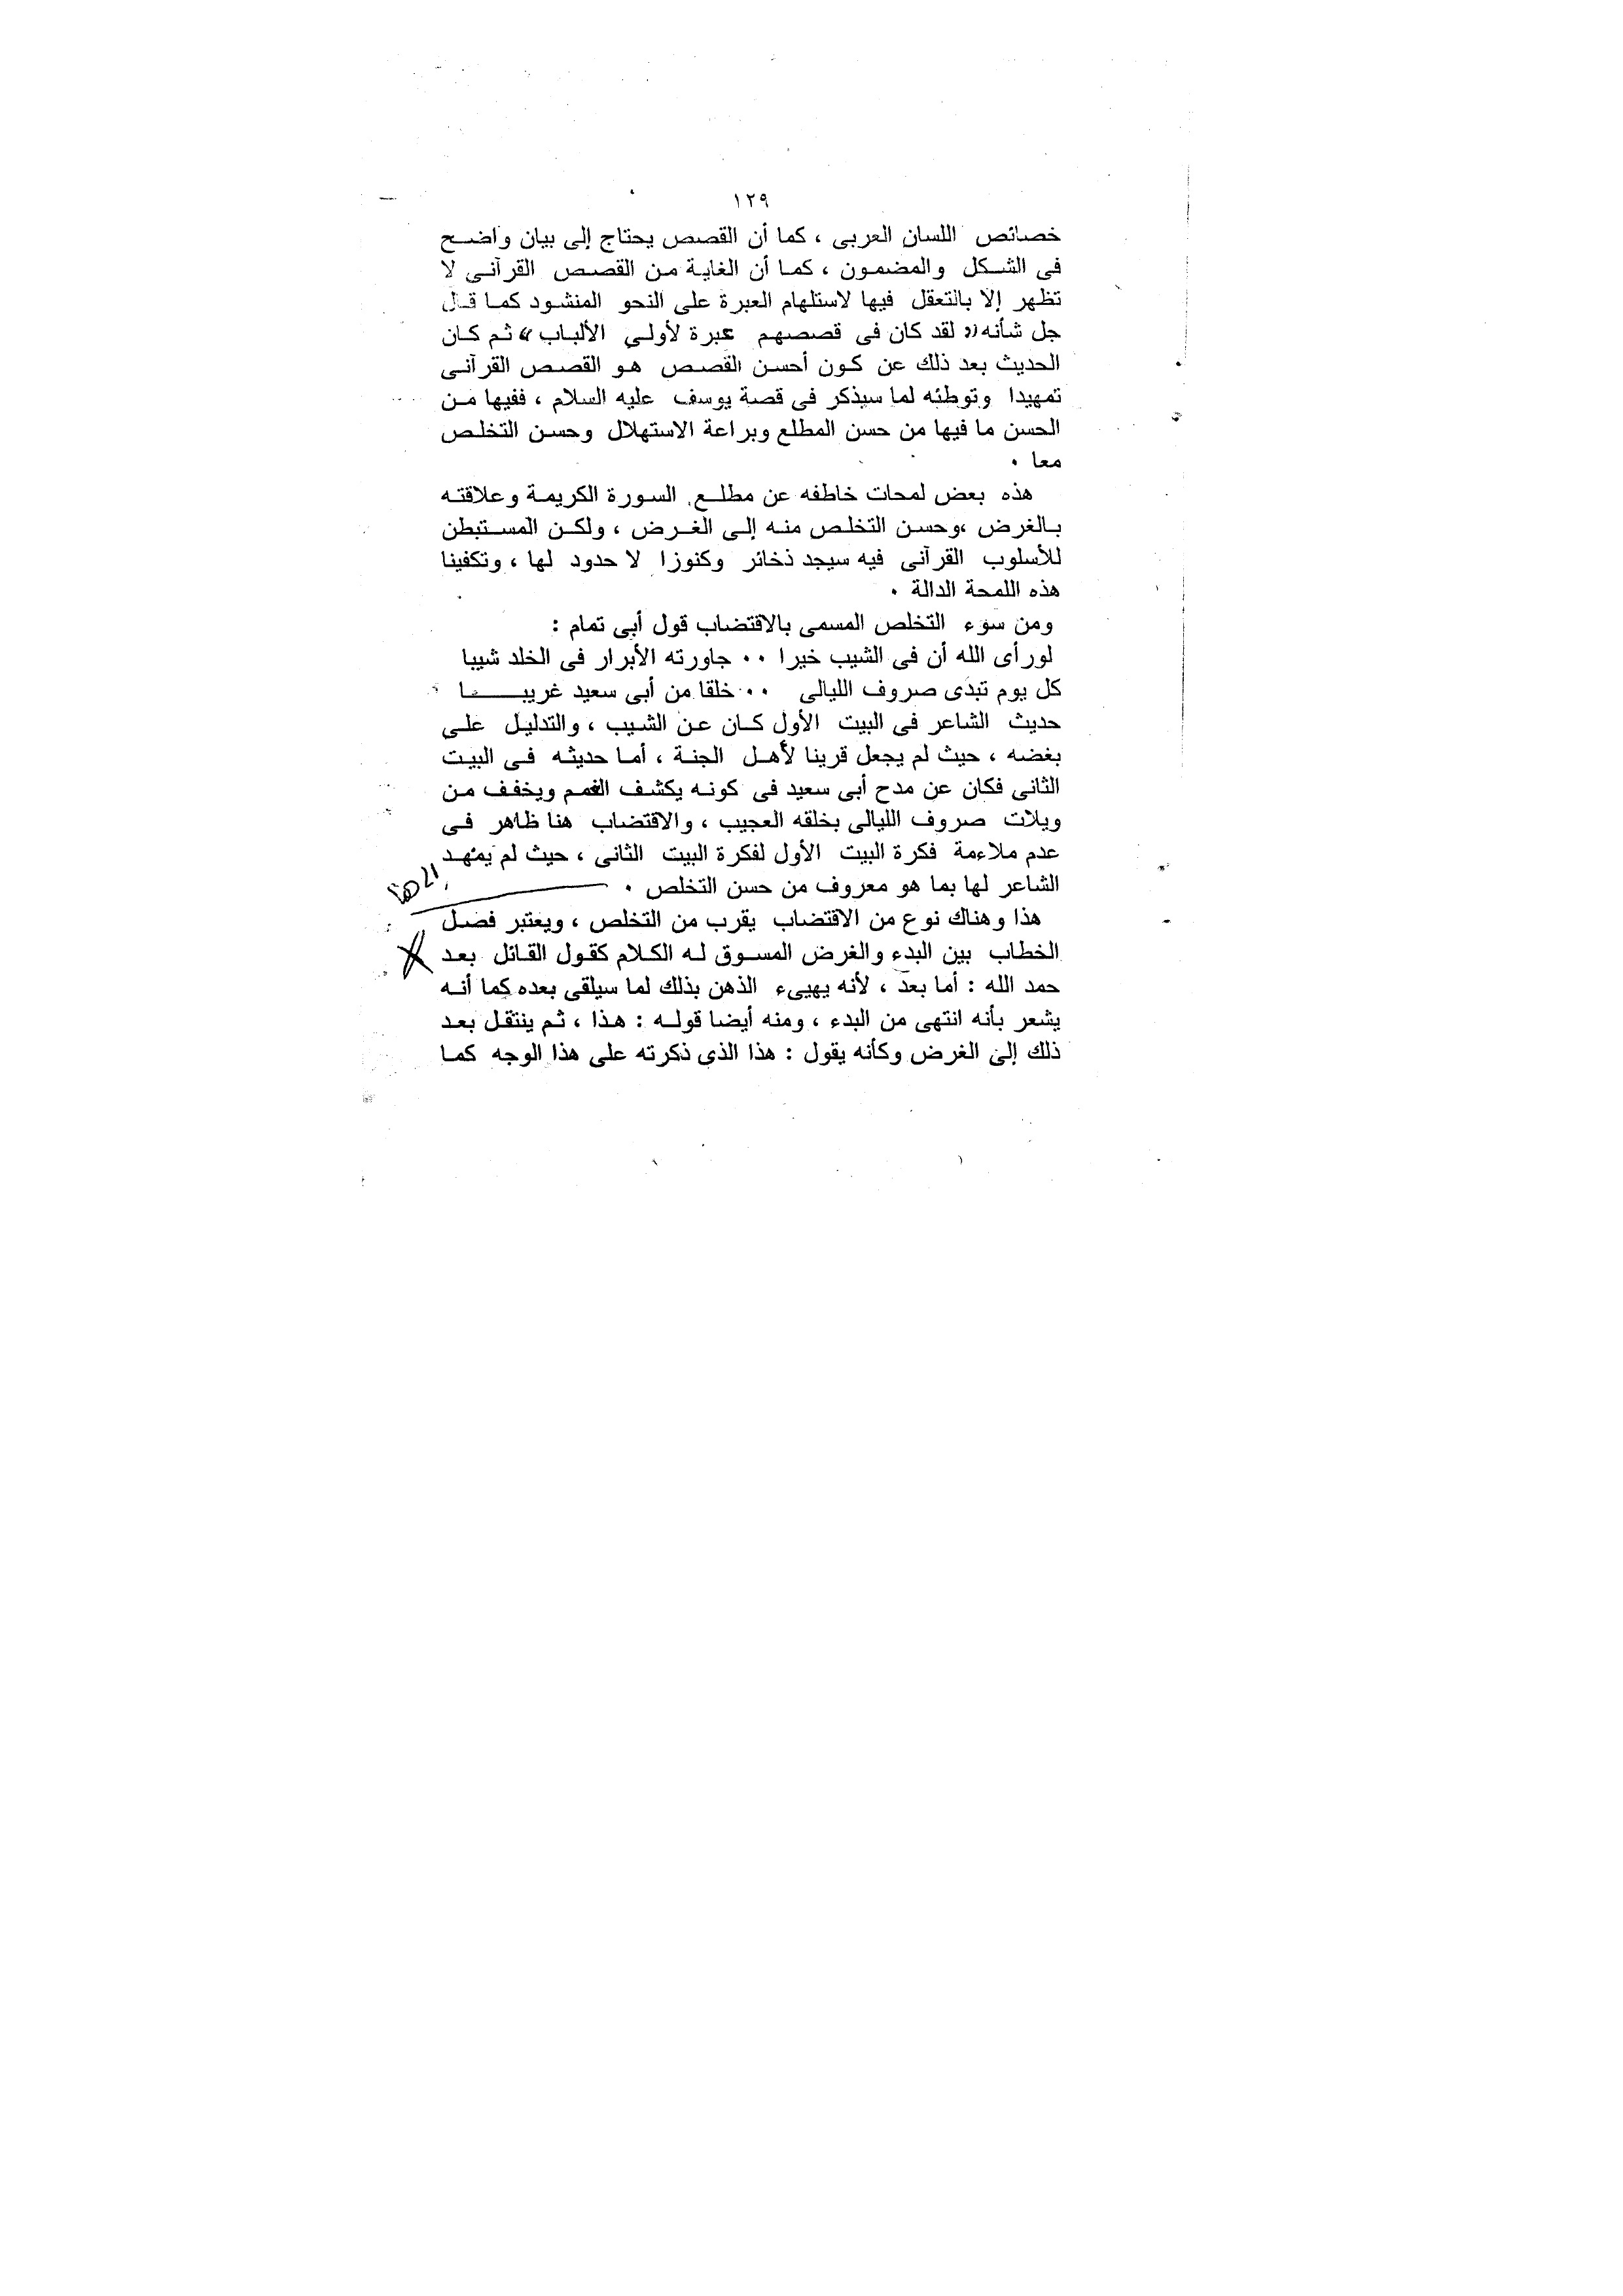 ١٢٩
خصائص اللسان العربى ، كما أن القصص يحتاج إلى بيان واضح
فى الشكل والمضمون ، كما أن الغاية من القصص القرآنى لا
تظهر إلا بالتعقل فيها لاستلهام العبرة على النحو المنشود كما قال
جل شأنه (( لقد كان فى قصصهم عبرة لأولى الألباب )) ثم كان
الحديث بعد ذلك عن كون أحسن القصص هو القصص القرآنى
تمهيدا وتوطئه لما سيذكر فى قصة يوسف عليه السلام ، ففيها من
الحسن ما فيها من حسن المطلع وبراعة الاستهلال وحسن التخلص
معا ٠
هذه بعض لمحات خاطفه عن مطلع السورة الكريمة وعلاقته
بالغرض ،وحسن التخلص منه إلى الغرض ، ولكن المستبطن
للأسلوب القرآنى فيه سيجد ذخائر وكنوزا لا حدود لها ، وتكفينا
هذه اللمحة الدالة ٠
ومن سوء التخلص المسمى بالاقتضاب قول أبى تمام :
لورأى الله أن فى الشيب خيرا ٠٠ جاورته الأبرار فى الخلد شيبا
كل يوم تبدى صروف الليالى ٠٠ خلقا من أبى سعيد غريبـــا
حديث الشاعر فى البيت الأول كان عن الشيب ، والتدليل على
بغضه ، حيث لم يجعل قرينا لأهل الجنة ، أما حديثه فى البيت
الثانى فكان عن مدح أبى سعيد فى كونه يكشف الغمم ويخفف من
ويلات صروف الليالى بخلقه العجيب ، والاقتضاب هنا ظاهر فى
عدم ملاءمة فكرة البيت الأول لفكرة البيت الثانى ، حيث لم يمهد
الشاعر لها بما هو معروف من حسن التخلص ٠
هذا وهناك نوع من الاقتضاب يقرب من التخلص ، ويعتبر فصل
الخطاب بين البدء والغرض المسوق له الكلام كقول القائل بعد
حمد الله : أما بعد ، لأنه يهيىء الذهن بذلك لما سيلقى بعده كما أنه
يشعر بأنه انتهى من البدء ، ومنه أيضا قوله : هذا ، ثم ينتقل بعد
ذلك إلى الغرض وكأنه يقول : هذا الذى ذكرته على هذا الوجه كما